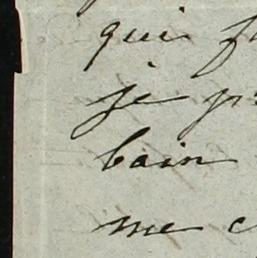 qui
je
bain
me